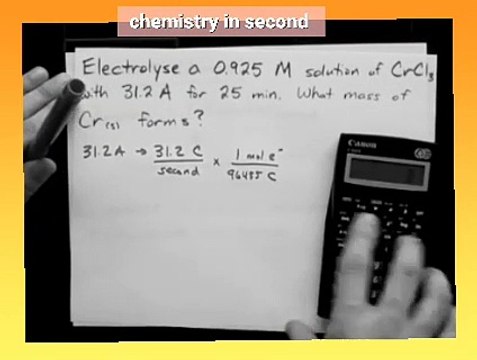 chemistry in second
Electrolyse a 0.925 M solution of CrCl₃
with 31.2 A for 25 min. What mass of
Cr(s) forms?
31.2 A → 31.2 C / second × 1 mol e⁻ / 96485 C
Canon